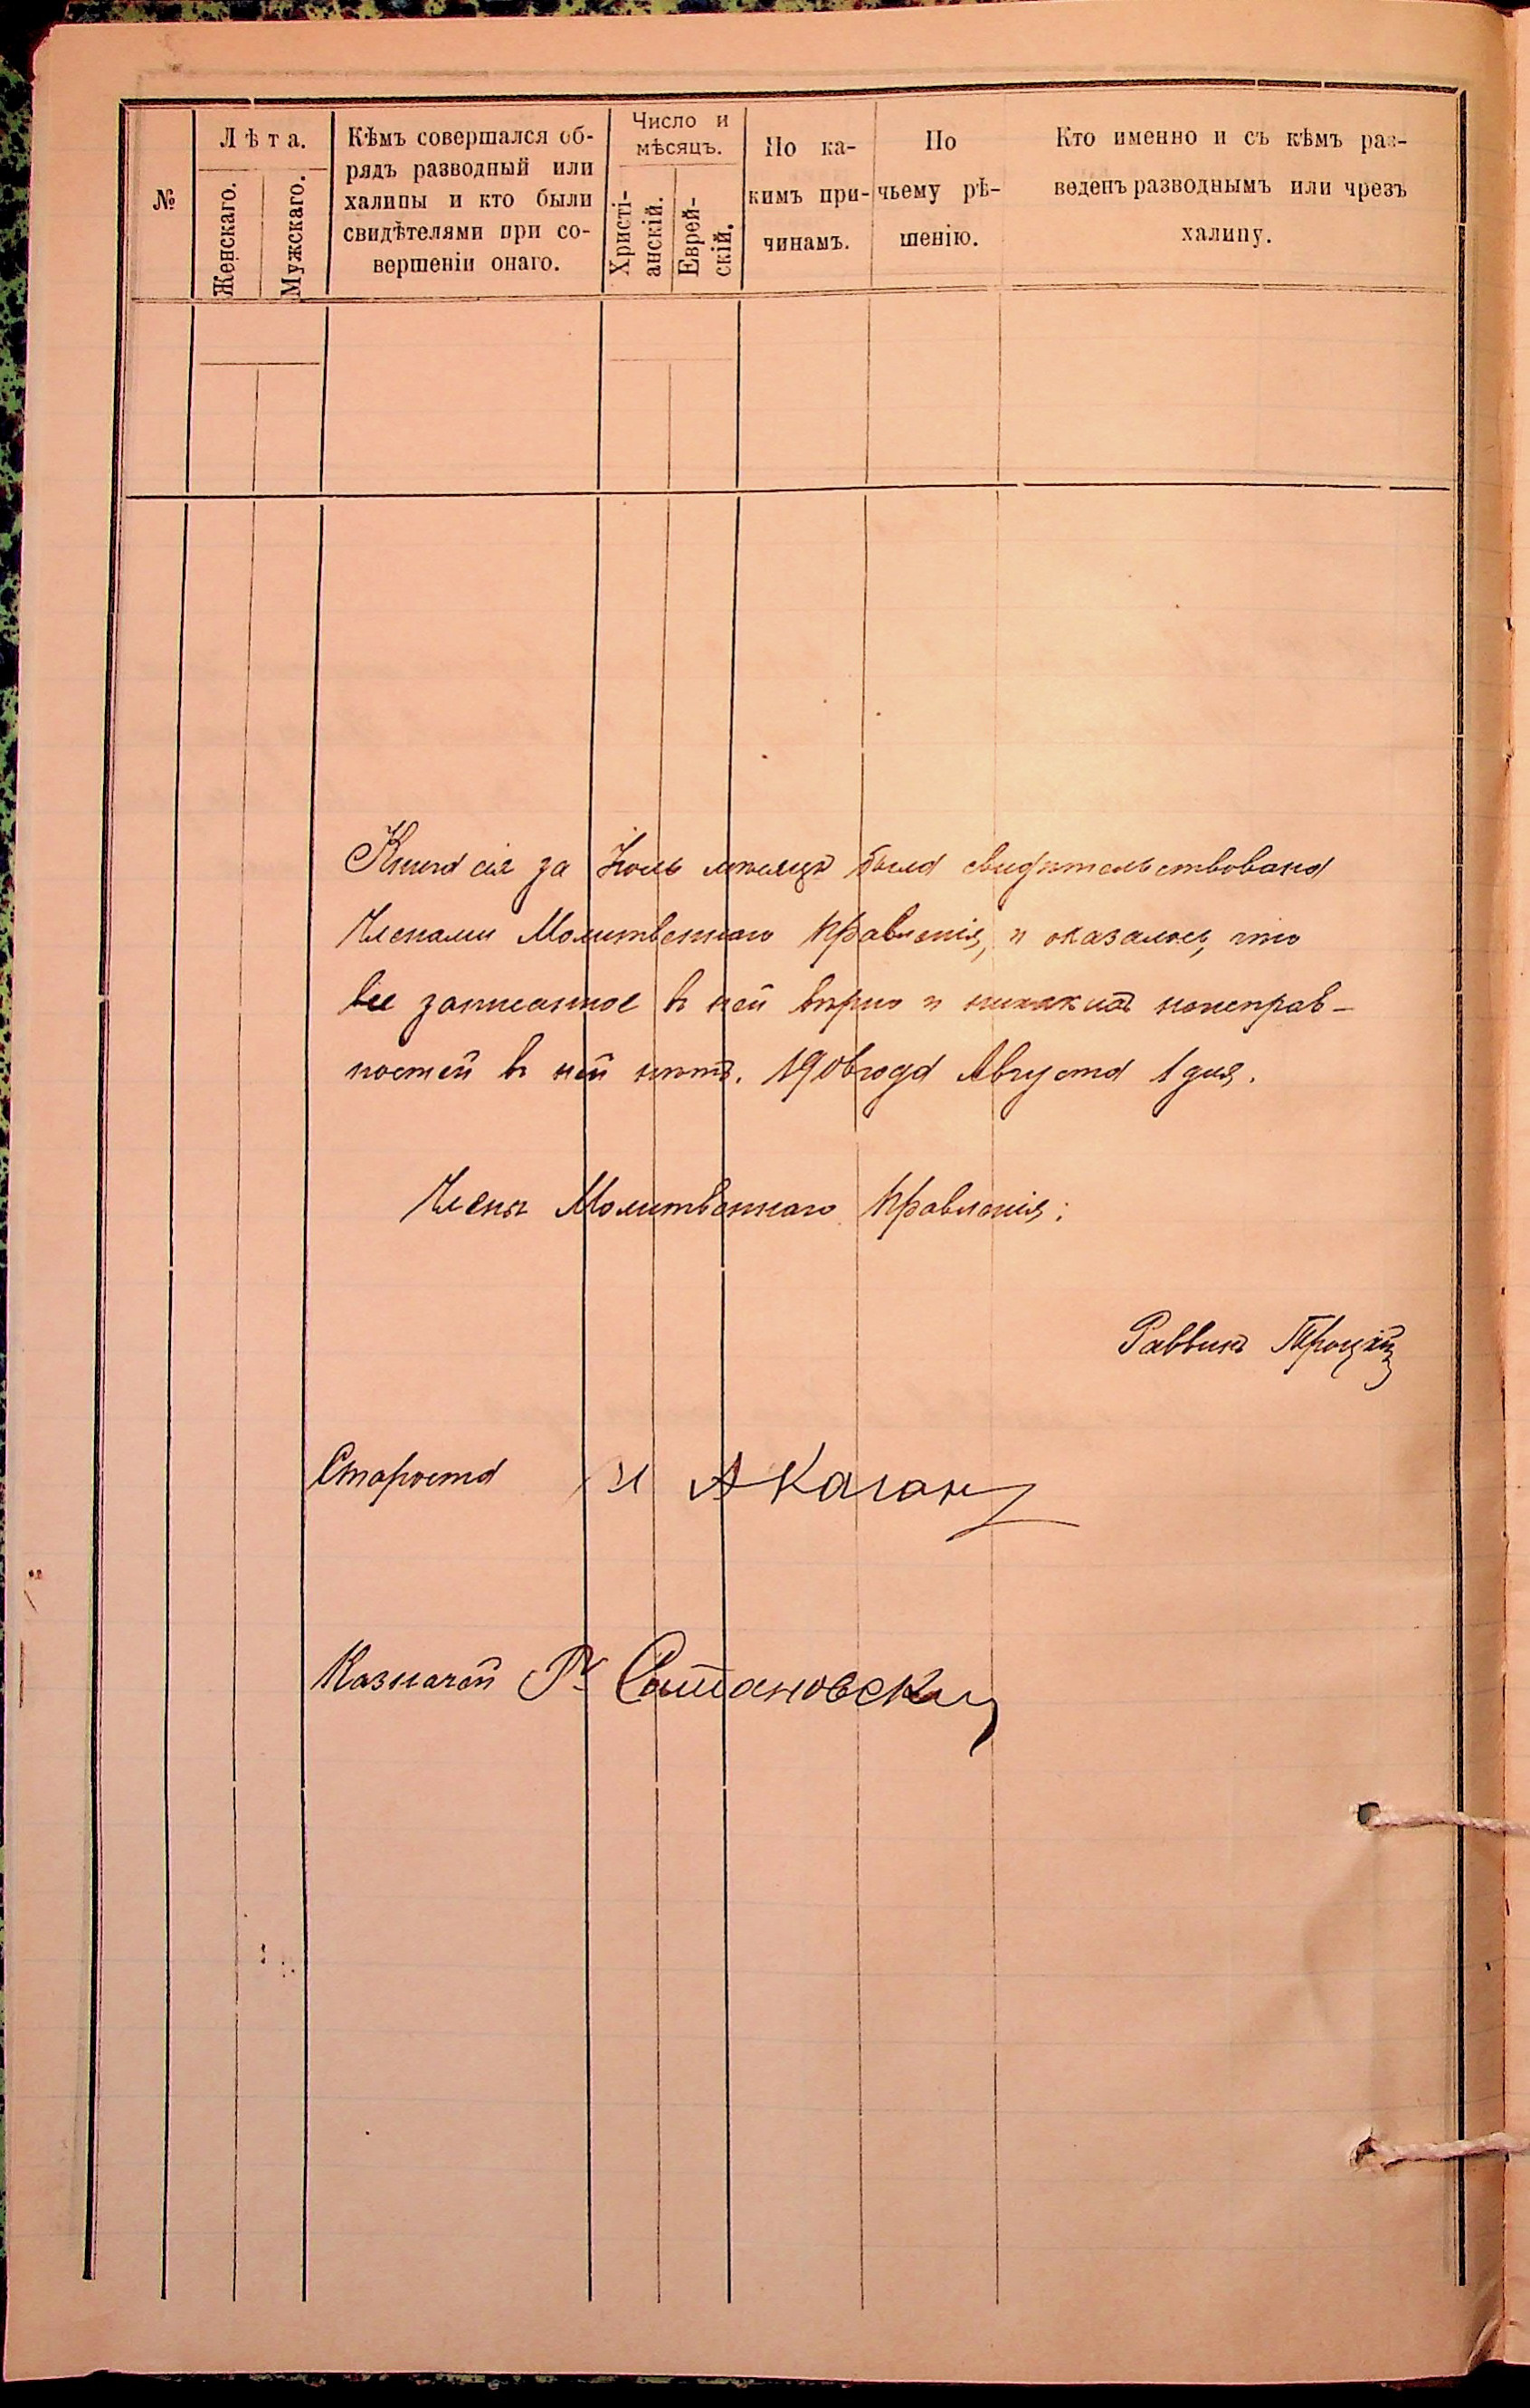 №
Лѣта.
Женскаго.
Мужскаго.
Кѣмъ совершался об-
рядъ разводный или
халицы и кто были
свидѣтелями при со-
вершеніи онаго.
Число и
мѣсяцъ.
Христі-
анскій.
Еврей-
скій.
По ка-
кимъ при-
чинамъ.
По
чьему рѣ-
шенію.
Кто именно и съ кѣмъ раз-
веденъ разводнымъ или чрезъ
халицу.
Книга сія за Іюль мѣсяцъ была свидѣтельствована
Членами Молитвеннаго Правленія, и оказалось, что
все записанное въ ней вѣрно и никакихъ неисправ-
ностей въ ней нѣтъ. 1906 года Августа 1 дня.
Члены Молитвеннаго Правленія:
Раввинъ Троцкій
Староста И А Каганъ
Казначей